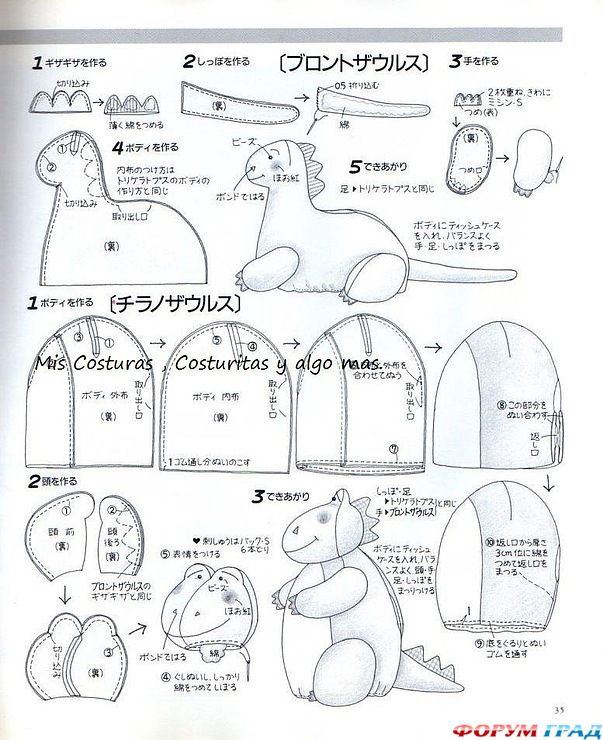 1 ギザギザを作る
切り込み
薄く綿をつめる
2 しっぽを作る
(裏)
0.5折り込む
綿
〔ブロントザウルス〕
3 手を作る
2枚重ね、きわに
ミシン・S
つめ(表)
(裏)
つめ口
4 ボディを作る
内布のつけ方は
トリケラトプスのボディの
作り方と同じ
①
②
切り込み
取り出し口
(裏)
ビーズ
ほお紅
ボンドではる
5 できあがり
足▶トリケラトプスと同じ
ボディにティッシュケース
を入れ、バランスよく
手・足・しっぽをまつる
1 ボディを作る
〔チラノザウルス〕
③
①
ボディ 外布
(裏)
取り出し口
⑤
④
ボディ 内布
(裏)
取り出し口
1ゴム通し分ぬいのこす
外布を
合わせてぬう
取り出し口
⑦
⑧この部分を
ぬい合わす
返し口
Mis Costuras , Costuritas y algo mas.
2 頭を作る
①
頭 前
(裏)
②
頭
後ろ
(裏)
ブロントザウルスの
ギザギザと同じ
切り込み
③
(裏)
♥刺しゅうはバック・S
6本どり
⑤ 表情をつける
ビーズ
ほお紅
ボンドではる
綿
④ ぐしぬいし、しっかり
綿をつめてしぼる
3 できあがり
しっぽ・足
▶トリケラトプス
手▶ブロントザウルス
と同じ
ボディにティッシュ
ケースを入れ、バ
ランスよく頭・手・
足・しっぽを
まつりつける
⑩返し口から厚さ
3cm位に綿を
つめて返し口を
まつる
1
⑨底をぐるりとぬい
ゴムを通す
35
ФОРУМ ГРАД